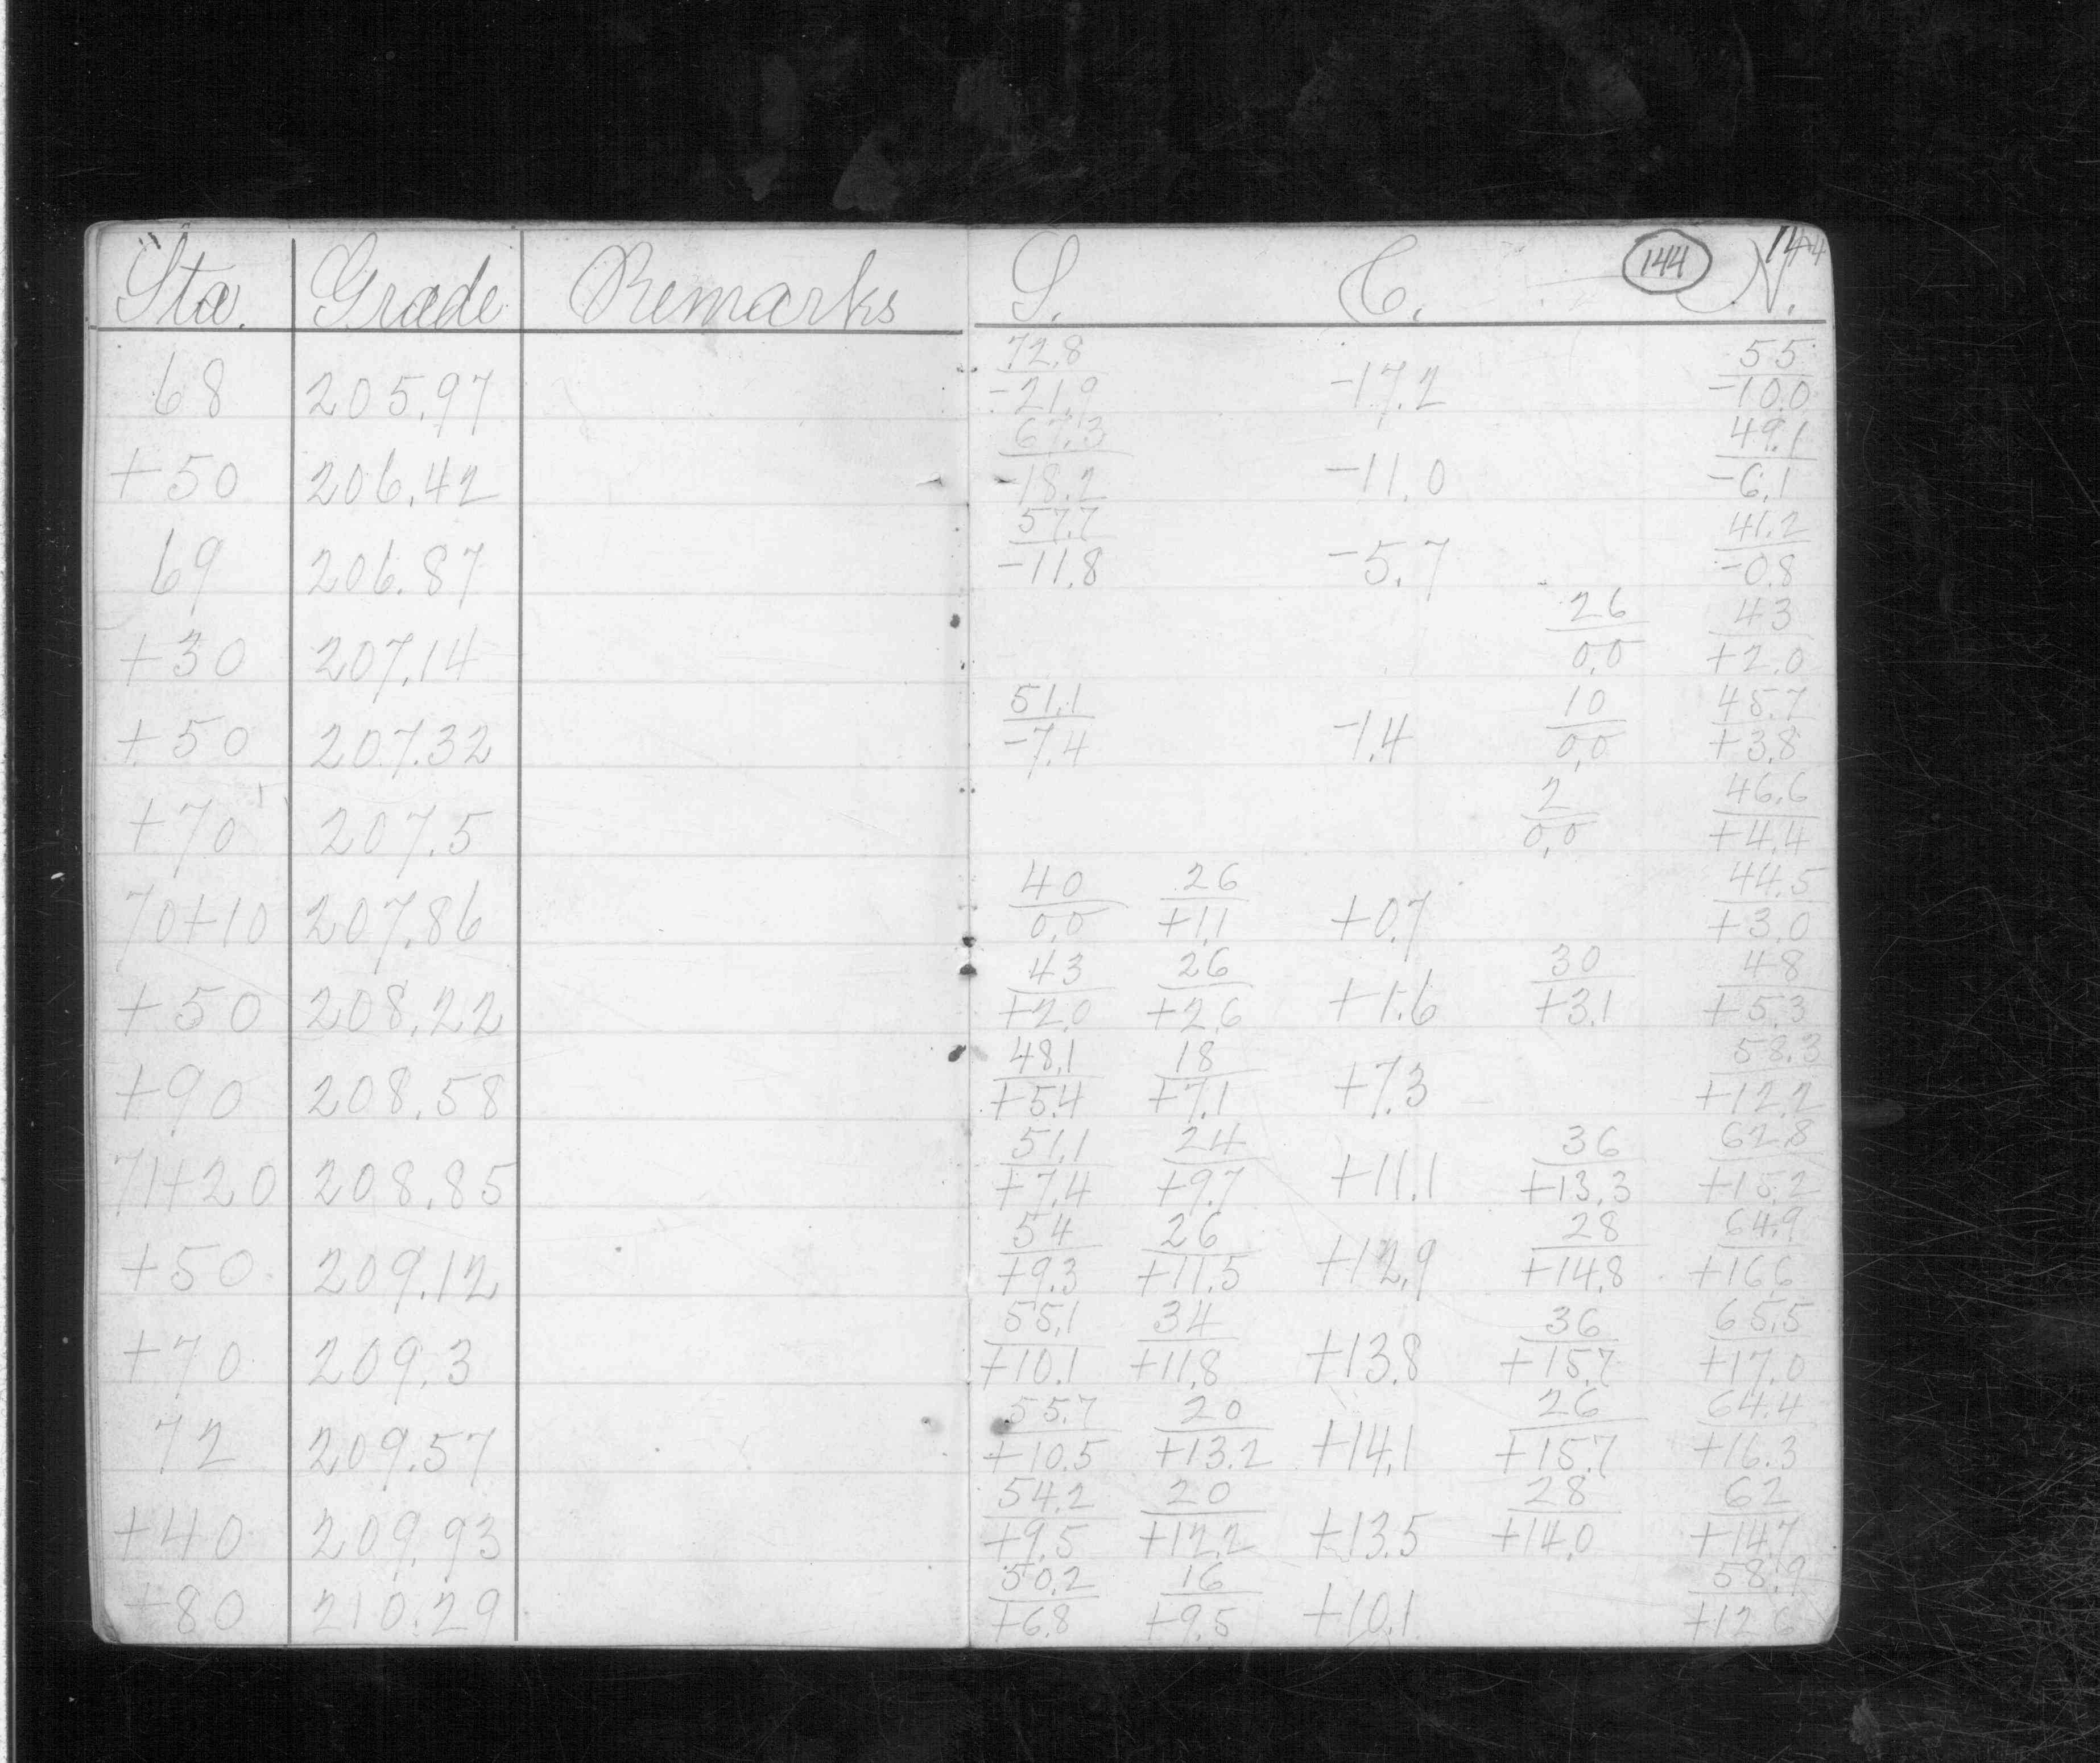 Sta. Grade Remarks S. C. 144 N. 144
72.8 55
68 205.97 -21.9 -17.2 -10.0
67.3 49.1
+50 206.42 -18.2 -11.0 -6.1
57.7 41.2
69 206.87 -11.8 -5.7 -0.8
26 43
+30 207.14 0.0 +2.0
51.1 10 45.7
+50 207.32 -7.4 -1.4 0.0 +3.8
2 46.6
+70 207.5 0.0 +4.4
40 26 44.5
70+10 207.86 0.0 +1.1 +0.7 +3.0
43 26 30 48
+50 208.22 +2.0 +2.6 +1.6 +3.1 +5.3
48.1 18 58.3
+90 208.58 +5.4 +7.1 +7.3 +12.2
51.1 24 36 62.8
71+20 208.85 +7.4 +9.7 +11.1 +13.3 +15.2
54 26 28 64.9
+50 209.12 +9.3 +11.5 +12.9 +14.8 +16.6
55.1 34 36 65.5
+70 209.3 +10.1 +11.8 +13.8 +15.7 +17.0
55.7 20 26 64.4
72 209.57 +10.5 +13.2 +14.1 +15.7 +16.3
54.2 20 28 62
+40 209.93 +9.5 +12.2 +13.5 +14.0 +14.7
50.2 16 58.9
+80 210.29 +6.8 +9.5 +10.1 +12.6